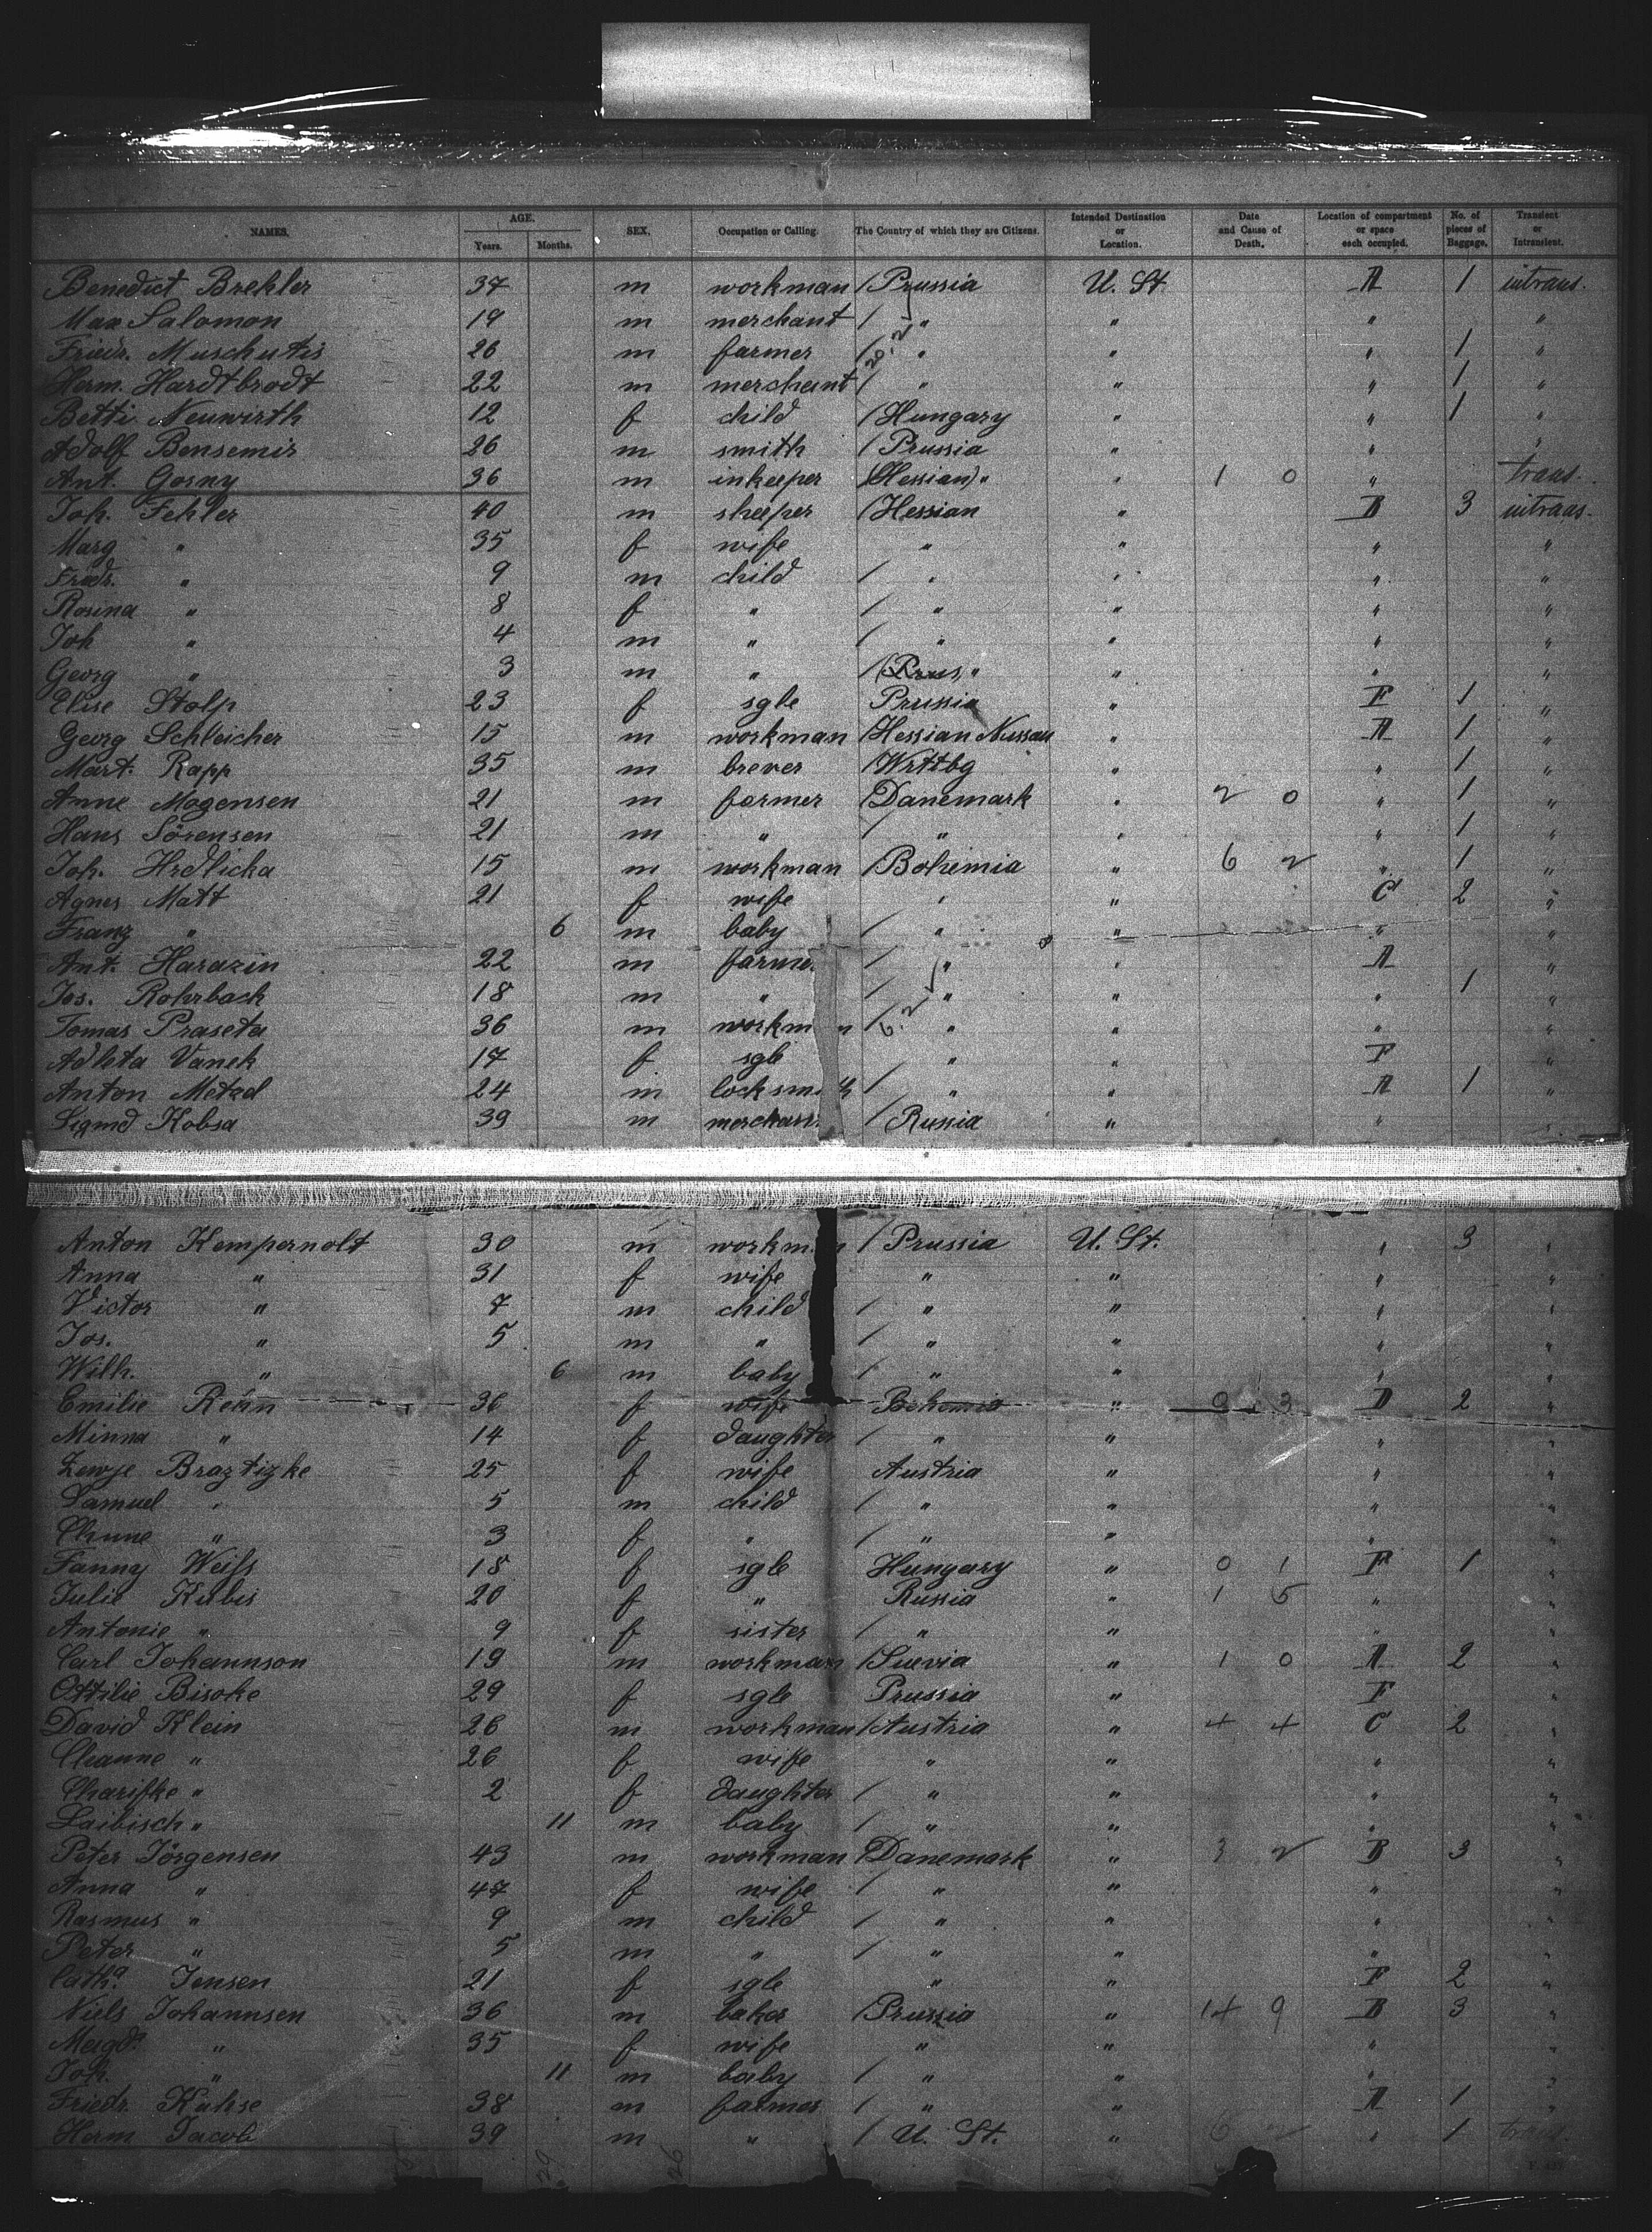 NAMES. AGE. Years. Months. SEX. Occupation or Calling. The Country of which they are Citizens. Intended Destination or Location. Date and Cause of Death. Location of compartment or space each occupied. No. of pieces of Baggage. Transient or Intransient.
Benedict Brehler 37 m workman / Prussia U. St. A 1 intrans.
Max Salomon 19 m merchant / " " " "
Friedr. Muschutis 26 m farmer / " " " 1 "
Herm. Hardtbrodt 22 m merchant / " " " 1 "
Betti Neuwirth 12 f child / Hungary " " 1 "
Adolf Bensemir 26 m smith / Prussia " " "
Ant. Gosny 36 m inkeeper (Hessian) " " 1 0 " trans.
Joh. Fehler 40 m sheeper / Hessian " B 3 intrans.
Marg " 35 f wife " " " "
Friedr. " 9 m child / " " " "
Rosina " 8 f " / " " " "
Joh " 4 m " / " " " "
Georg " 3 m " / " " " "
Elise Stolp 23 f sgle Prussia " F 1 "
Georg Schleicher 15 m workman / Hessian Nussau " A 1 "
Mart. Rapp 35 m brever / Wrttbg " " 1 "
Anne Mogensen 21 m farmer / Danemark " 2 0 " 1 "
Hans Sörensen 21 m " / " " " 1 "
Joh. Hrdlicka 15 m workman / Bohemia " 6 2 " 1 "
Agnes Matt 21 f wife " " C 2 "
Franz " 6 m baby / " " " "
Ant. Harazin 22 m farmer / " " A "
Jos. Rohrbach 18 m " / " " " 1 "
Tomas Praseta 36 m workm n / " " " "
Adleta Vanek 17 f sgle " " F "
Anton Metzd 24 m locksm h / " " A 1 "
Sigmd Kobsa 39 m merchan / Russia " "
Anton Kempernolt 30 m workm n / Prussia U. St. " 3 "
Anna " 31 f wife " " " "
Victor " 7 m child / " " " "
Jos. " 5 m " / " " " "
Wilh. " 6 m baby / " " " "
Emilie Rehn 36 f wife Bohemia " 9 3 D 2 "
Minna " 14 f daughter / " " " "
Zewje Braztizke 25 f wife Austria " " "
Samuel " 5 m child / " " " "
Chune " 3 f " / " " " "
Fanny Weiss 18 f sgle Hungary " 0 1 F 1 "
Julie Kubis 20 f " Russia " 1 5 " "
Antonie " 9 f sister / " " " "
Carl Johannson 19 m workman / Suevia " 1 0 A 2 "
Ottilie Bisoke 29 f sgle Prussia " F "
David Klein 26 m workman / Austria " 4 4 C 2 "
Channe " 26 f wife " " " "
Charifke " 2 f daughter / " " " "
Laibisch " 11 m baby / " " " "
Peter Jörgensen 43 m workman / Danemark " 3 2 B 3 "
Anna " 47 f wife / " " " "
Rasmus " 9 m child / " " " "
Peter " 5 m " / " " " "
Catha. Jensen 21 f sgle " " F 2 "
Niels Johannsen 36 m baker / Prussia " 14 9 B 3 "
Magd. " 35 f wife " " " "
Joh. " 11 m baby / " " " "
Friedr. Kühse 38 m farmer / " " A 1 "
Herm Jacob 39 m " / U. St. " 6 2 " 1 trans.